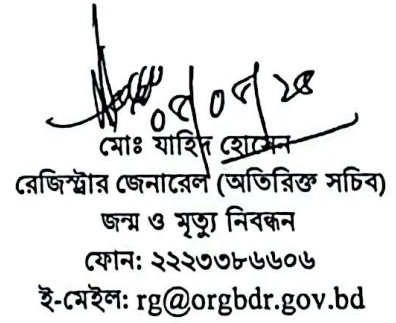 ০৭/০৭/২৫
মোঃ যাহিদ হোসেন
রেজিস্ট্রার জেনারেল (অতিরিক্ত সচিব)
জন্ম ও মৃত্যু নিবন্ধন
ফোন: ২২২৩৩৮৬৬০৬
ই-মেইল: rg@orgbdr.gov.bd